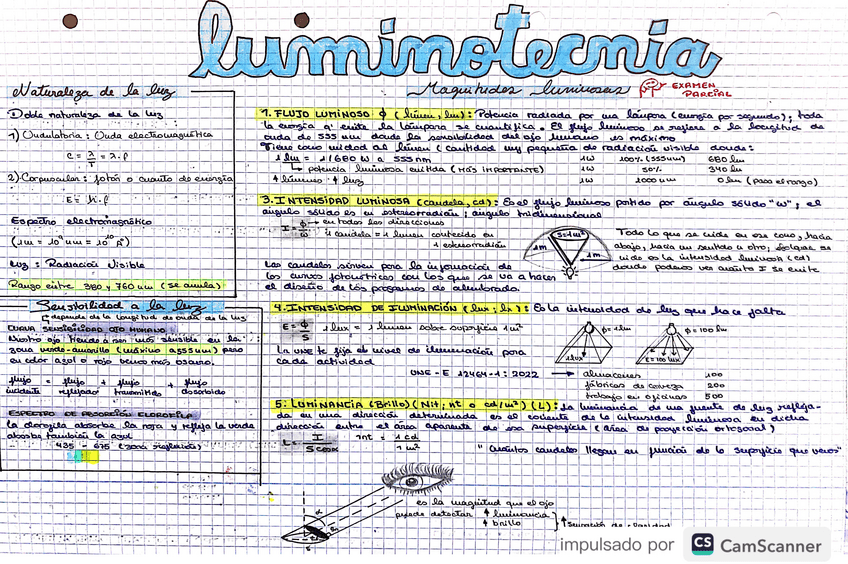 luminotecnia
Naturaleza de la luz
Doble naturaleza de la luz
1) Ondulatoria: Onda electromagnética
c = λ/T = λ·f
2) Corpuscular: fotón o cuanto de energía
E = h·f
Espectro electromagnético
Luz: Radiación Visible
Rango entre 380 y 760 nm (se anula)
Sensibilidad a la luz
depende de la longitud de onda de la luz
CURVA SENSIBILIDAD OJO HUMANO:
Nuestro ojo tiende a ser más sensible en la
zona verde-amarillo (máximo a 555 nm) pero
en color azul o rojo vemos más oscuro.
flujo incidente = flujo reflejado + flujo transmitido + flujo absorbido
ESPECTRO DE ABSORCIÓN CLOROFILA
la clorofila absorbe la roja y refleja la verde
absorbe también la azul
435 - 675 (zona reflexión)
Magnitudes luminosas
EXAMEN
PARCIAL
1. FLUJO LUMINOSO ϕ (lúmen, lm): Potencia radiada por una lámpara (energía por segundo), toda
la energía q' emite la lámpara se cuantifica. El flujo luminoso se refiere a la longitud de
onda de 555 nm donde la sensibilidad del ojo humano es máxima
Tiene como unidad al lúmen (cantidad muy pequeña de radiación visible donde:
1 lm = 1/680 W a 555 nm
potencia luminosa emitida (MÁS IMPORTANTE)
↑ lúmenes ↑ luz
1W 100% (555nm) 680 lm
1W 50% 340 lm
1W 1000 nm 0 lm (paso el rango)
3. INTENSIDAD LUMINOSA (candela, cd): Es el flujo luminoso partido por ángulo sólido "w", el
ángulo sólido es un estereorradián; ángulo tridimensional
I = ϕ/w en todas las direcciones
1 candela = 1 lumen contenido en
1 estereorradián
Las candelas sirven para la información de
las curvas fotométricas con las que se va a hacer
el diseño de los programas de alumbrado.
S=1m²
1m
1m
Todo lo que se mide en ese cono, hacia
abajo, hacia un sentido u otro,
mide es la intensidad luminosa (cd)
donde podemos ver cuánta I se emite
4. INTENSIDAD DE ILUMINACIÓN (lux, lx): Es la intensidad de luz que hace falta
E = ϕ/S 1 lux = 1 lumen sobre superficie 1 m²
La UNE te fija el nivel de iluminación para
cada actividad
ϕ = 1 lm
1 lux
ϕ = 100 lm
E = 100 lux
UNE - E 12464-1: 2022 → almacenes 100
fábricas de cerveza 200
trabajo en oficinas 500
5. LUMINANCIA (Brillo) (Nit; nt o cd/m²) (L): La luminancia de una fuente de luz refleja-
da en una dirección determinada es el cociente de la intensidad luminosa en dicha
dirección entre el área aparente de su superficie (área de proyección ortogonal)
L = I/S cosα 1nt = 1cd/1m²
"cuántas candelas llegan en función de la superficie que vemos"
es la magnitud que el ojo
puede detectar ↑ luminancia
↑ brillo
↑ sensación de claridad
impulsado por CS CamScanner